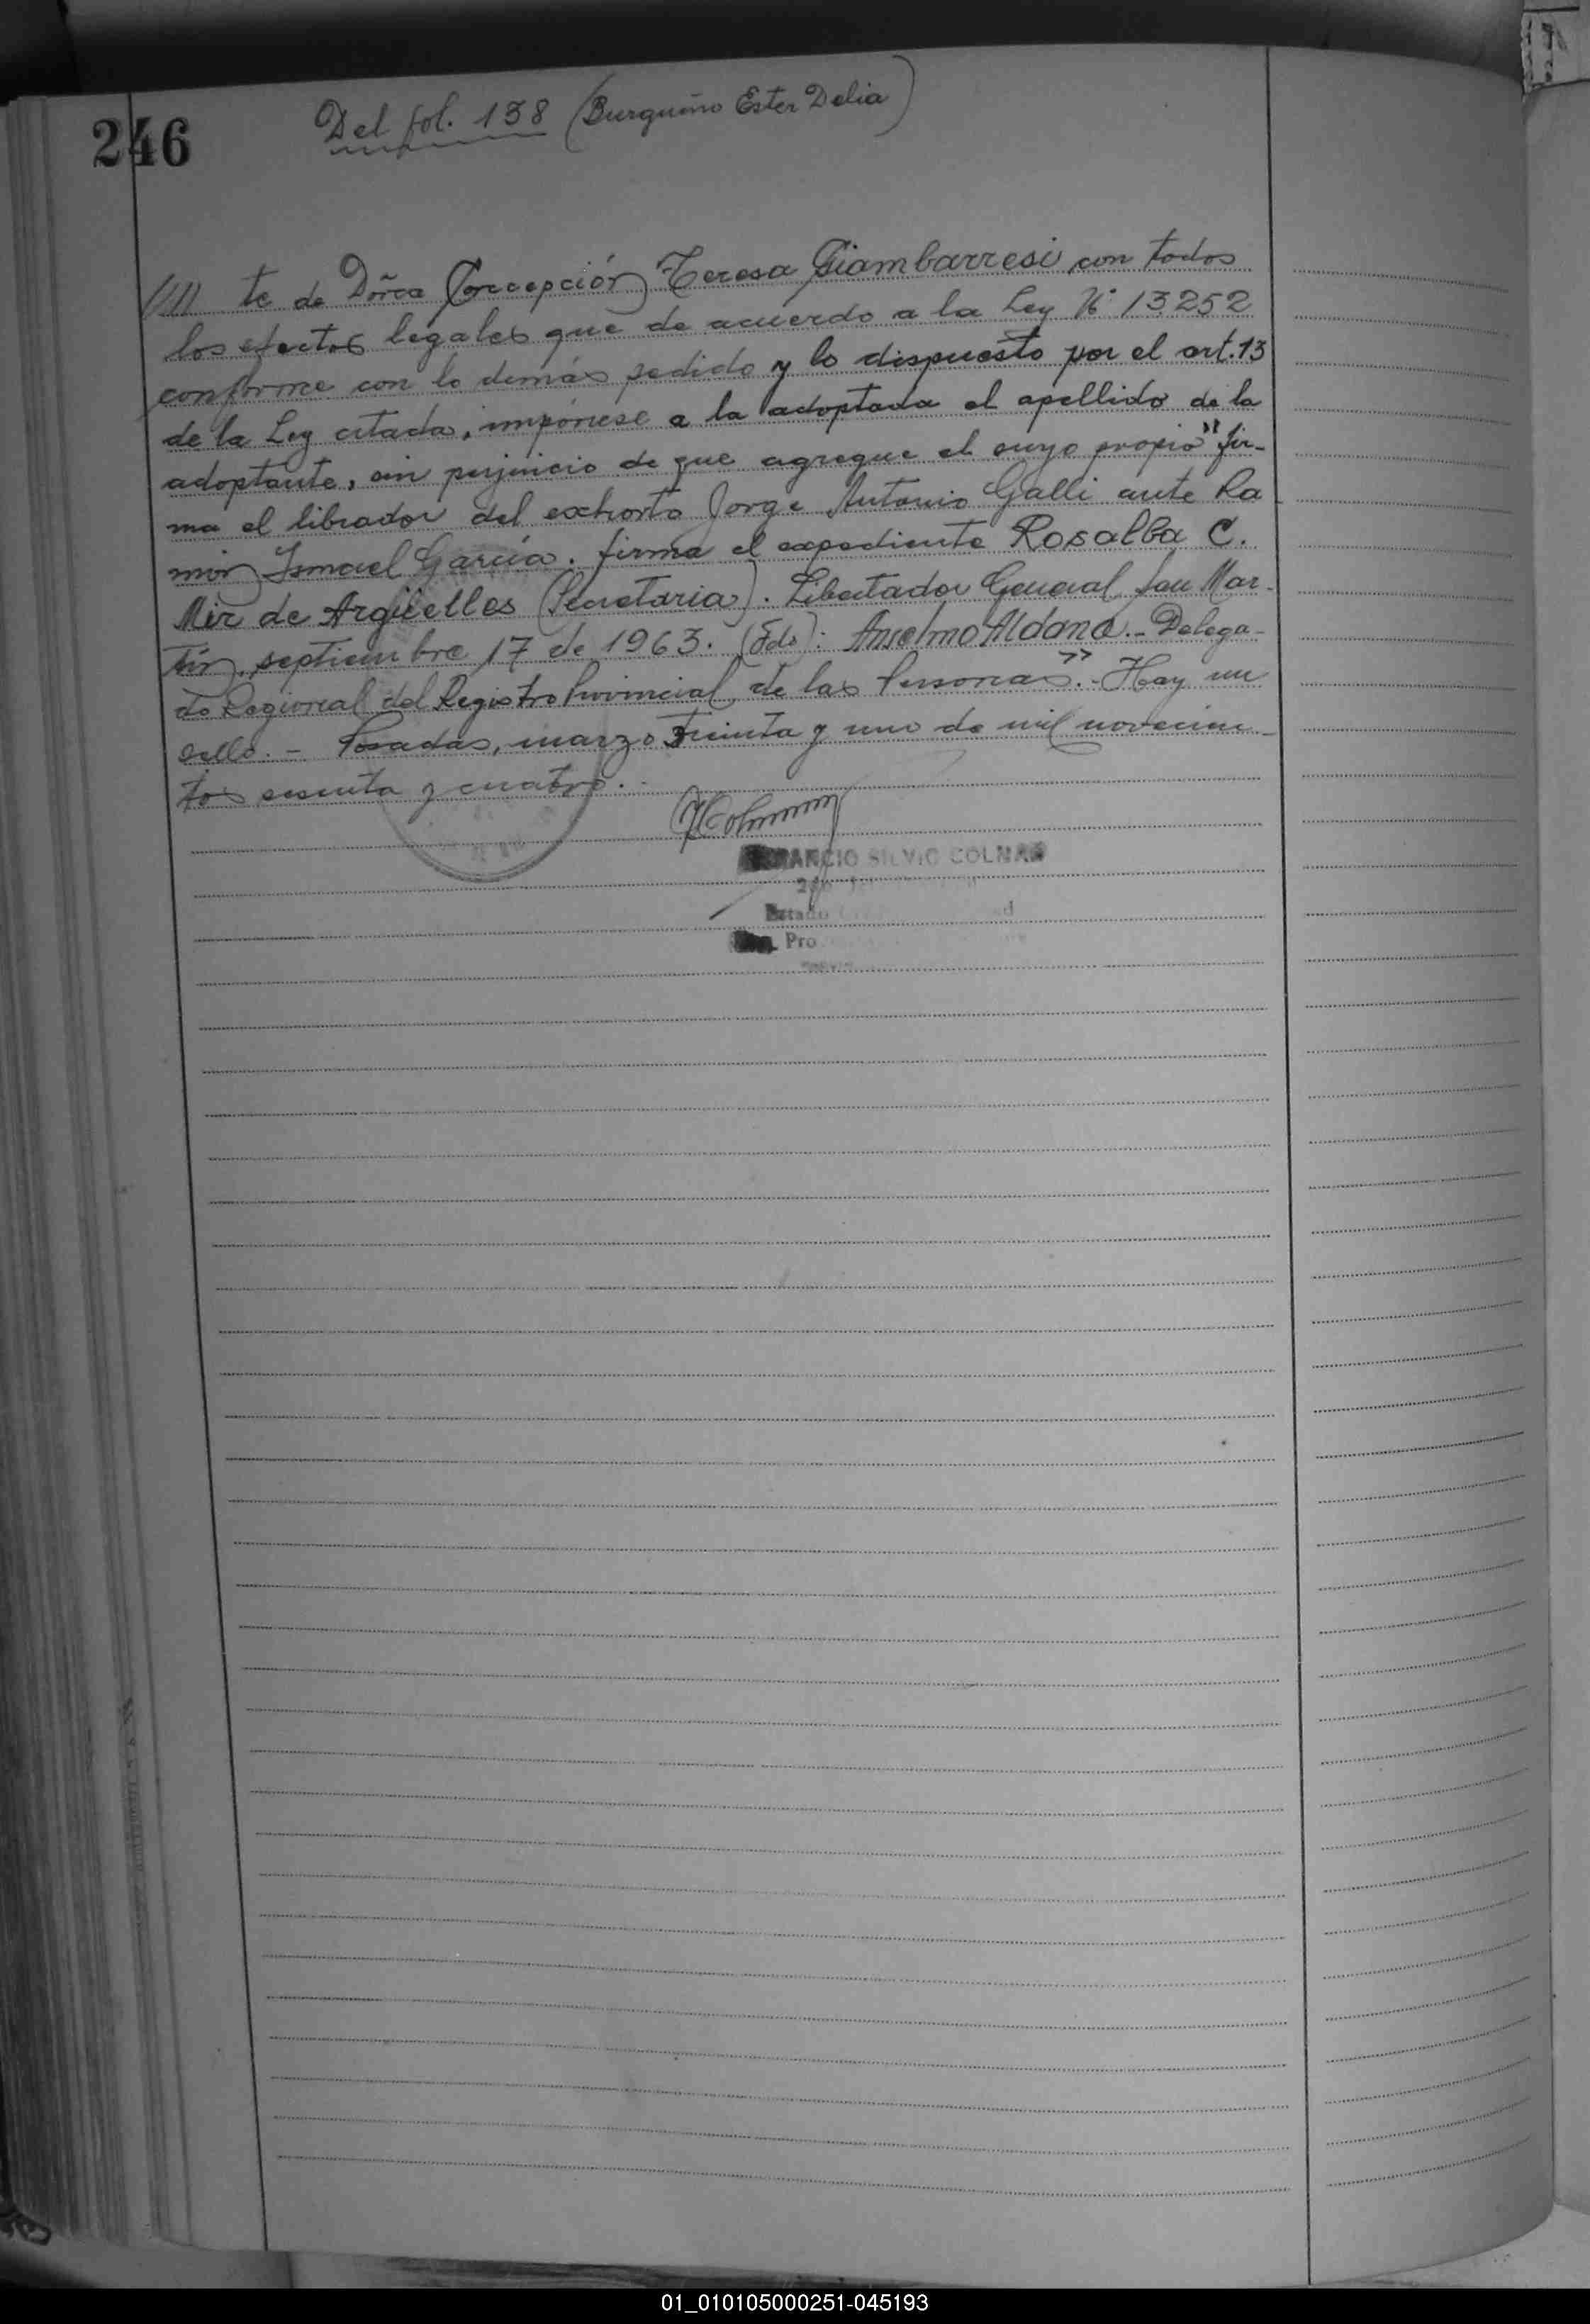 246
Del fol. 138 (Burgueño Ester Delia)
//// te de Doña Concepción Teresa Giambarresi con todos
los efectos legales que de acuerdo a la Ley Nº 13252
conforme con lo demás pedido y lo dispuesto por el art. 13
de la Ley citada, impónese a la adoptada el apellido de la
adoptante, sin perjuicio de que agregue el suyo propio" fir-
ma el librador del exhorto Jorge Antonio Galli ante Ra
món Ismael García. firma el expediente Rosalba C.
Mir de Argüelles (Secretaria). Libertador General San Mar-
tín, septiembre 17 de 1963. (Fdo): Anselmo Aldana.- Delega-
do Regional del Registro Provincial de las Personas.">> - Hay un
sello. - Posadas, marzo treinta y uno de mil novecien-
tos sesenta y cuatro.
SILVIO COLMAN
Estado
Pro
01_010105000251-045193